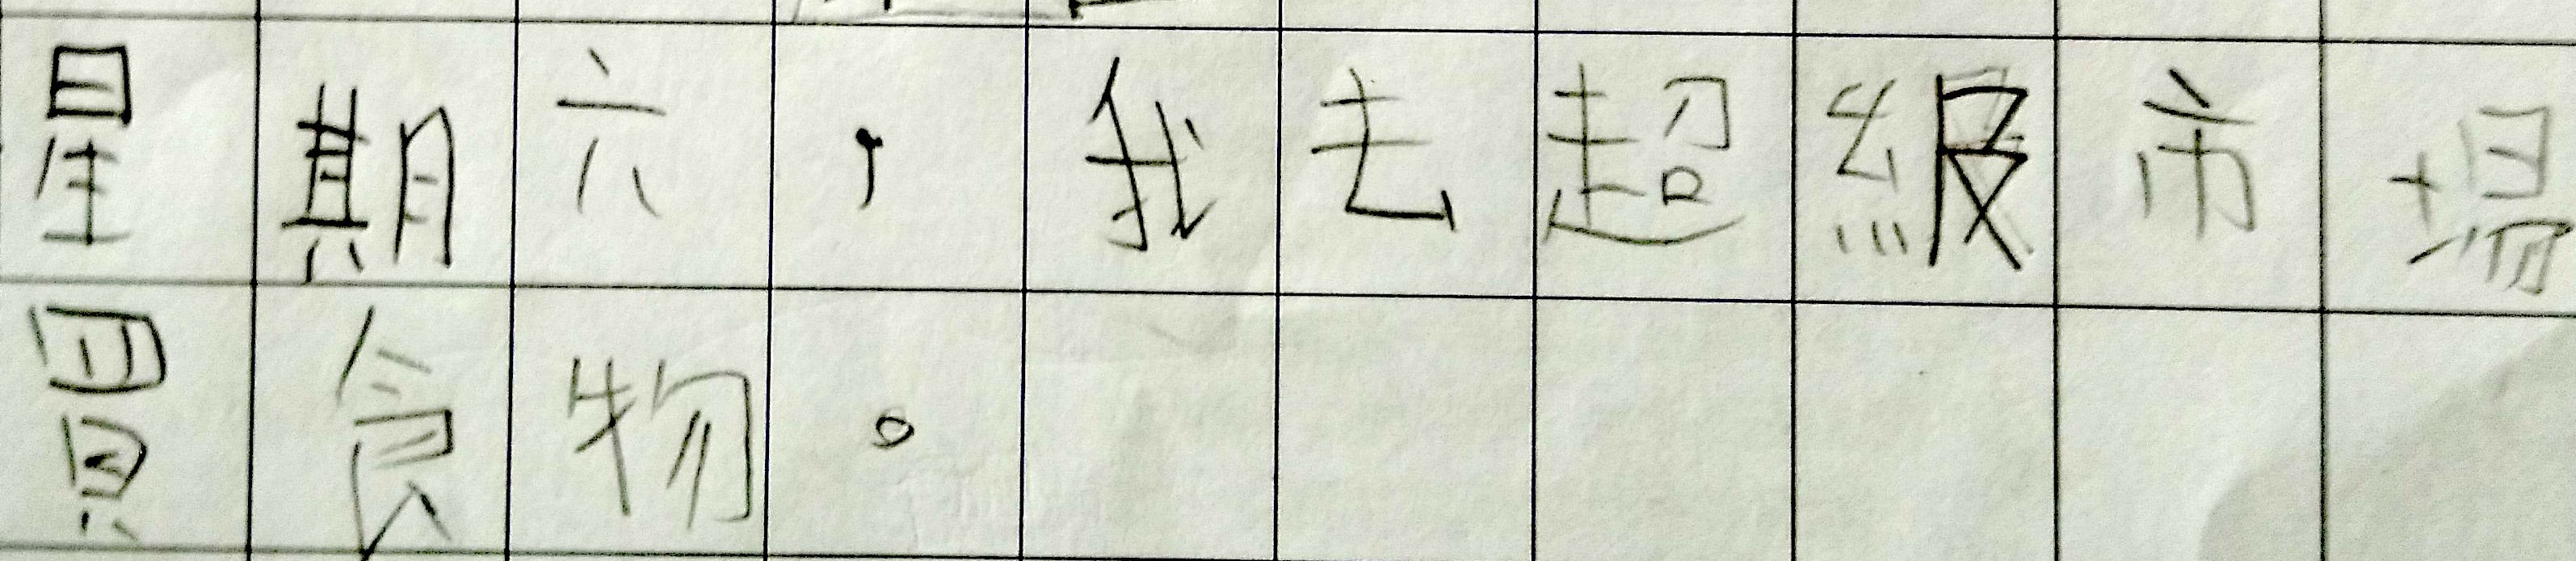 星期六，我去超級市場
買食物。